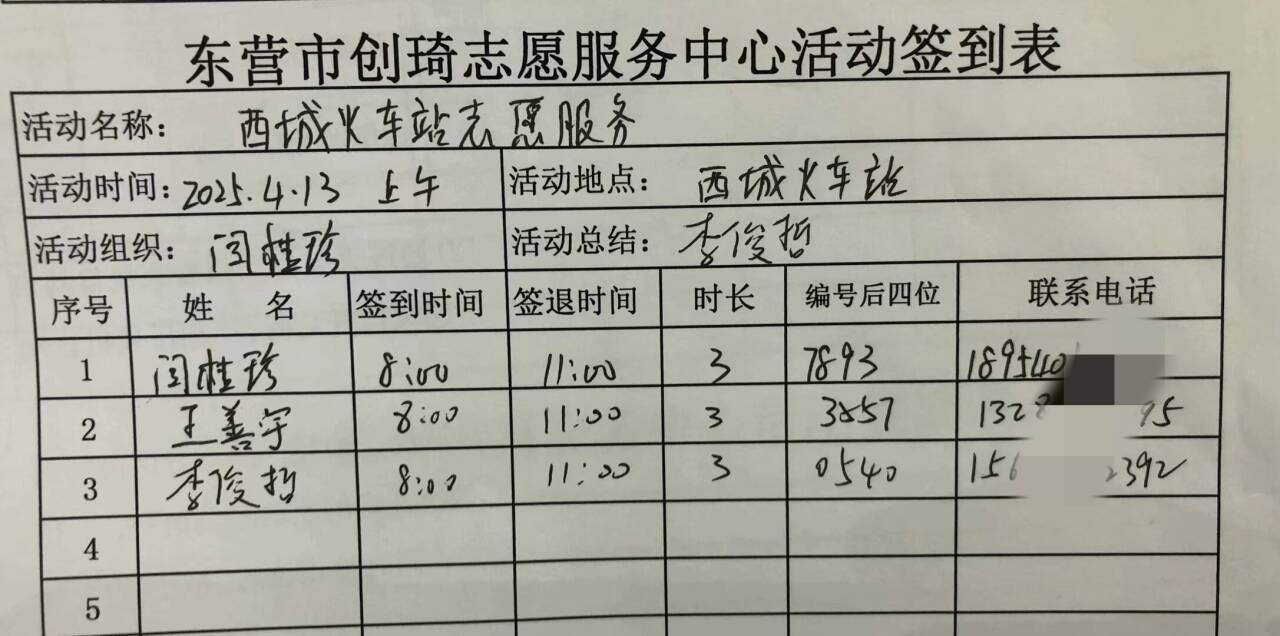 东营市创琦志愿服务中心活动签到表
活动名称: 西城火车站志愿服务
活动时间: 2025.4.13 上午 活动地点: 西城火车站
活动组织: 闫桂珍 活动总结: 李俊哲
序号 姓 名 签到时间 签退时间 时长 编号后四位 联系电话
1 闫桂珍 8:00 11:00 3 7893 189540
2 王善宇 8:00 11:00 3 3857 132 95
3 李俊哲 8:00 11:00 3 0540 156 2392
4
5